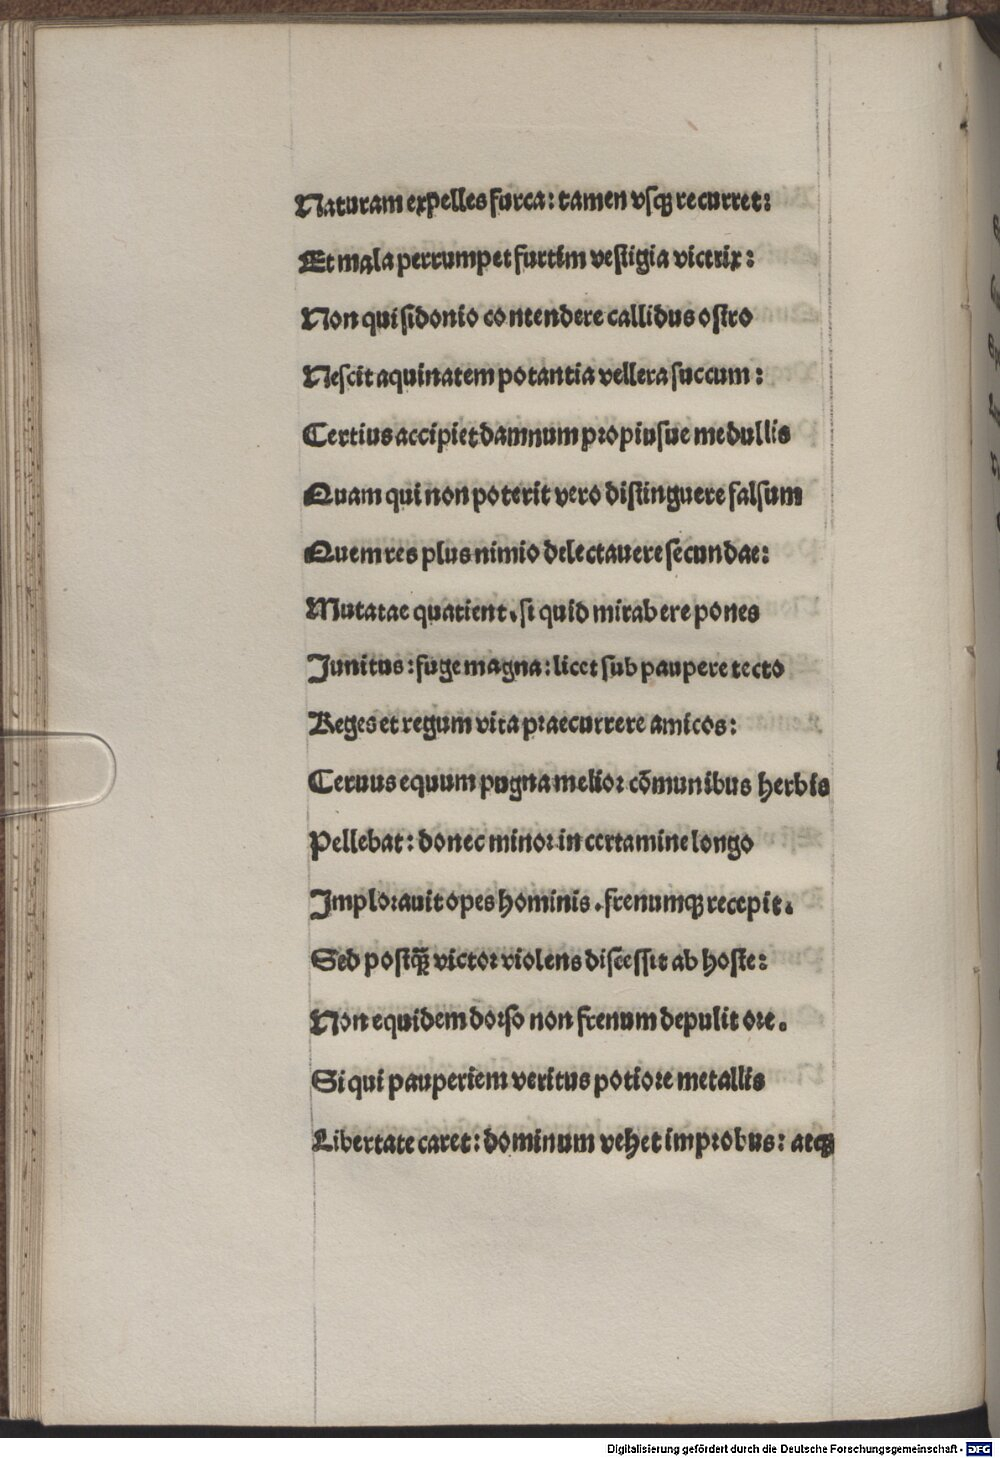 Naturam expelles furca: tamen vsqꝫ recurret:
Et mala perrumpet furtim vestigia victrix:
Non qui sidonio contendere callidus ostro
Nescit aquinatem potantia vellera succum:
Certius accipiet damnum propiusue medullis
Quam qui non poterit vero distinguere falsum
Quem res plus nimio delectauere secundae:
Mutatae quatient. si quid mirabere pones
Junitus: fuge magna: licet sub paupere tecto
Reges et regum vita praecurrere amicos:
Ceruus equum pugna melior cōmunibus herbis
Pellebat: donec minor in certamine longo
Implorauit opes hominis. frenumqꝫ recepit.
Sed postqꝫ̄ victor violens discessit ab hoste:
Non equidem dorso non frenum depulit ore.
Si qui pauperiem veritus potiore metallis
Libertate caret: dominum vehet improbus: atqꝫ
Digitalisierung gefördert durch die Deutsche Forschungsgemeinschaft - DFG